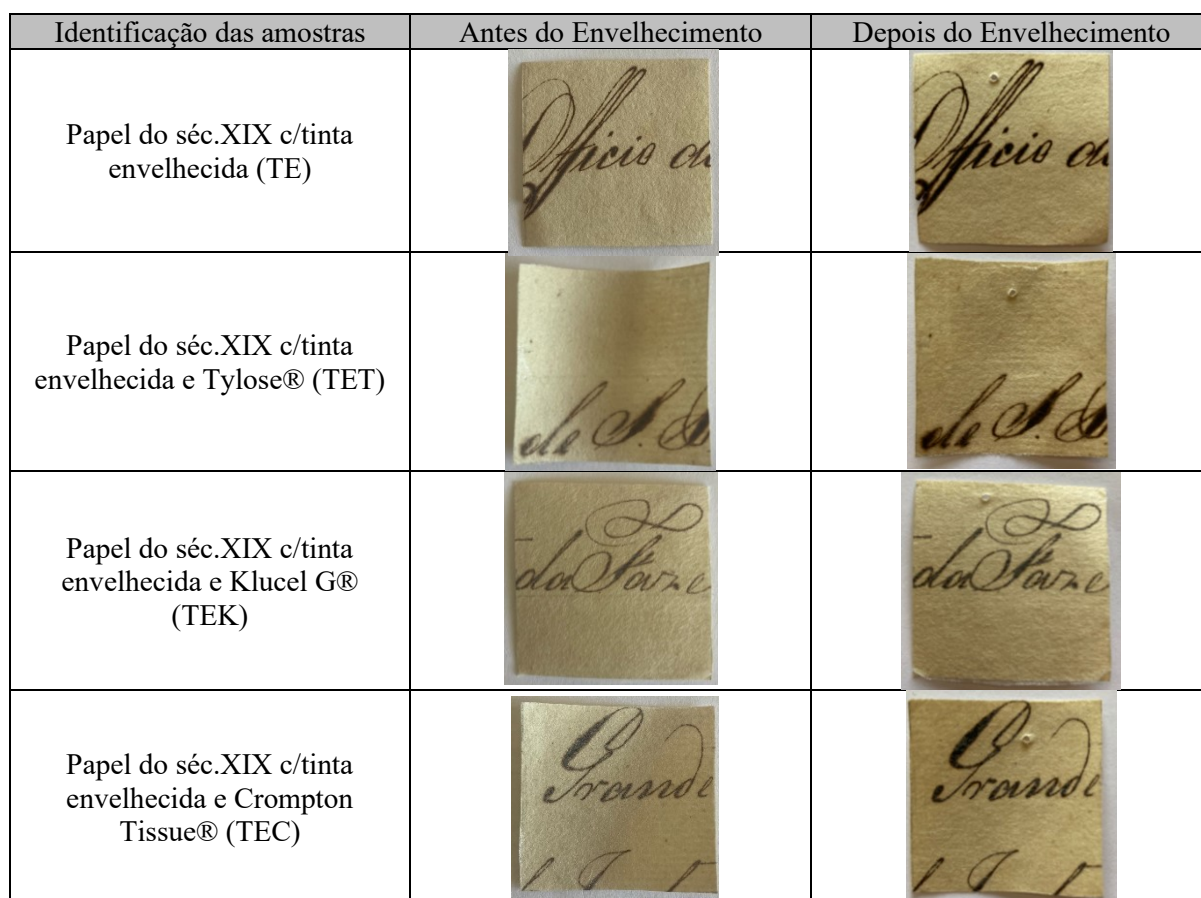 Identificação das amostras
Antes do Envelhecimento
Depois do Envelhecimento
Papel do séc.XIX c/tinta
envelhecida (TE)
Officio da
Officio da
Papel do séc.XIX c/tinta
envelhecida e Tylose® (TET)
de S.
de S.
Papel do séc.XIX c/tinta
envelhecida e Klucel G®
(TEK)
da Faze
da Faze
Papel do séc.XIX c/tinta
envelhecida e Crompton
Tissue® (TEC)
Grande
Grande